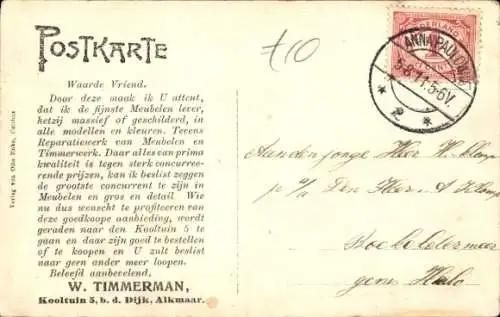 POSTKARTE
Waarde Vriend.
Door deze maak ik U attent,
dat ik de fijnste Meubelen lever,
hetzij massief of geschilderd, in
alle modellen en kleuren. Tevens
Reparatiewerk van Meubelen en
Timmerwerk. Daar alles van prima
kwaliteit is tegen sterk concurree-
rende prijzen, kan ik beslist zeggen
de grootste concurrent te zijn in
Meubelen en gros en detail. Wie
nu dus wenscht te profiteeren van
deze goedkoope aanbieding, wordt
geraden naar den Kooltuin 5 te
gaan en daar zijn goed te bestellen
of te koopen en U zult beslist
naar geen ander meer loopen.
Beleefd aanbevelend,
W. TIMMERMAN,
Kooltuin 5, b. d. Dijk, Alkmaar.
Verlag von Otto
£10
NEDERLAND
CENT
ANNA PAULOWNA
5-6V.
* 2 *
Aan den jonge Heer
p/a Den Heer A